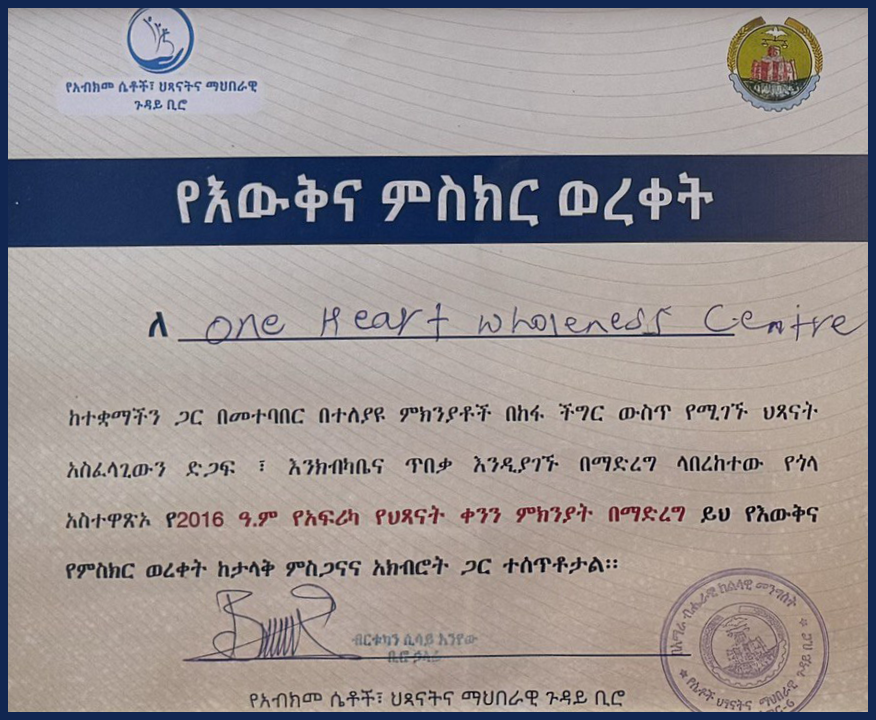 የአብክመ ሴቶች፣ ህጻናትና ማህበራዊ
ጉዳይ ቢሮ
የእውቅና ምስክር ወረቀት
ለ one Heart wholeness Centre
ከተቋማችን ጋር በመተባበር በተለያዩ ምክንያቶች በከፋ ችግር ውስጥ የሚገኙ ህጻናት
አስፈላጊውን ድጋፍ ፣ እንክብካቤና ጥበቃ እንዲያገኙ በማድረግ ላበረከተው የጎላ
አስተዋጽኦ የ2016 ዓ.ም የአፍሪካ የህጻናት ቀንን ምክንያት በማድረግ ይህ የእውቅና
የምስክር ወረቀት ከታላቅ ምስጋናና አክብሮት ጋር ተሰጥቶታል።
ብርቱካን ሲሳይ
ቢሮ ኃላፊ
የአብክመ ሴቶች፣ ህጻናትና ማህበራዊ ጉዳይ ቢሮ